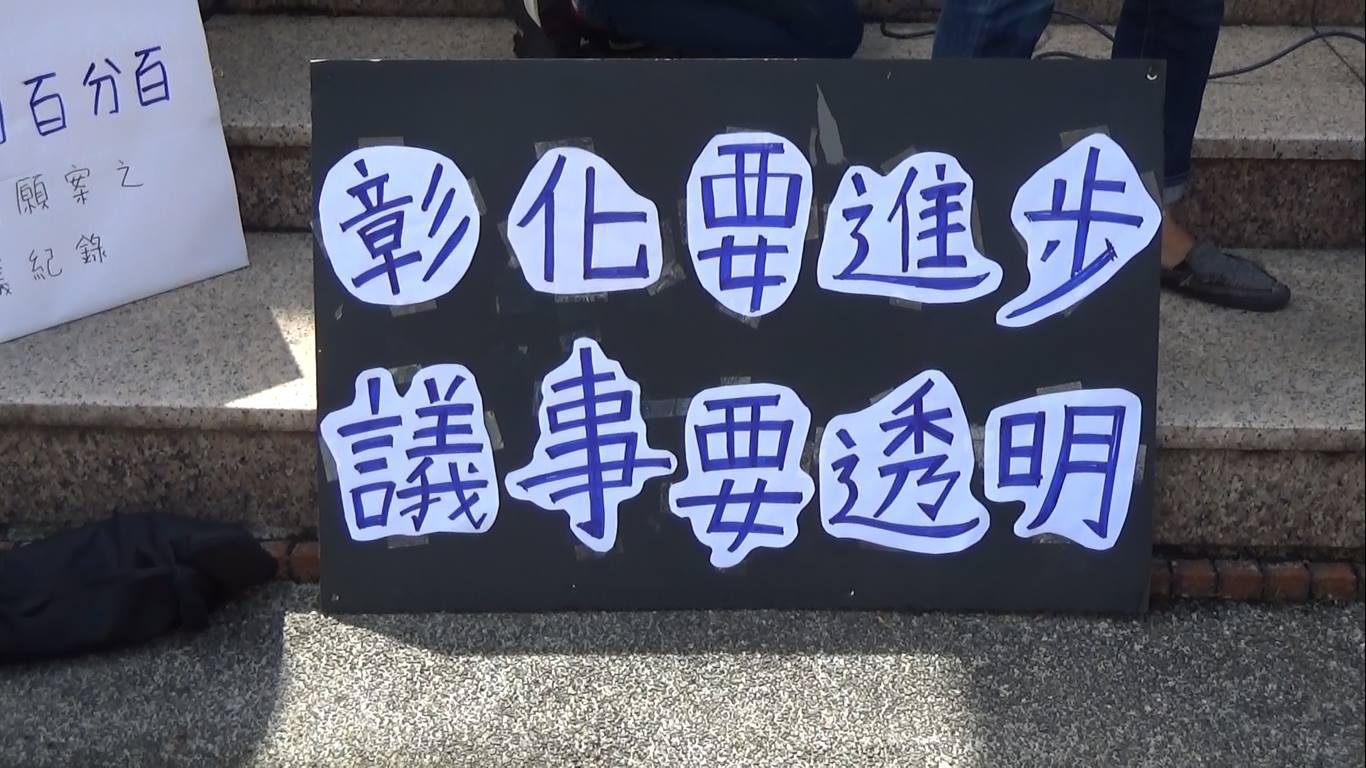 百分百
願案之
紀錄
彰化要進步
議事要透明